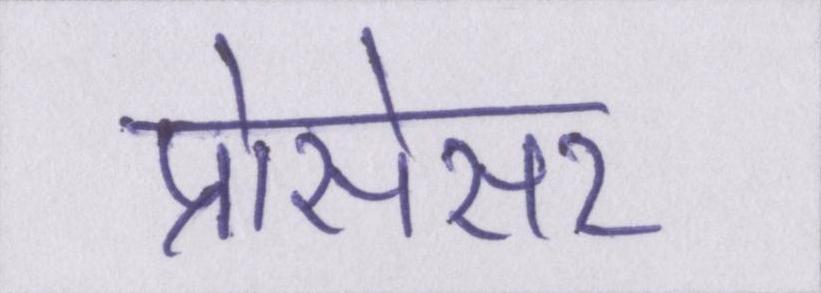 प्रोसेसर